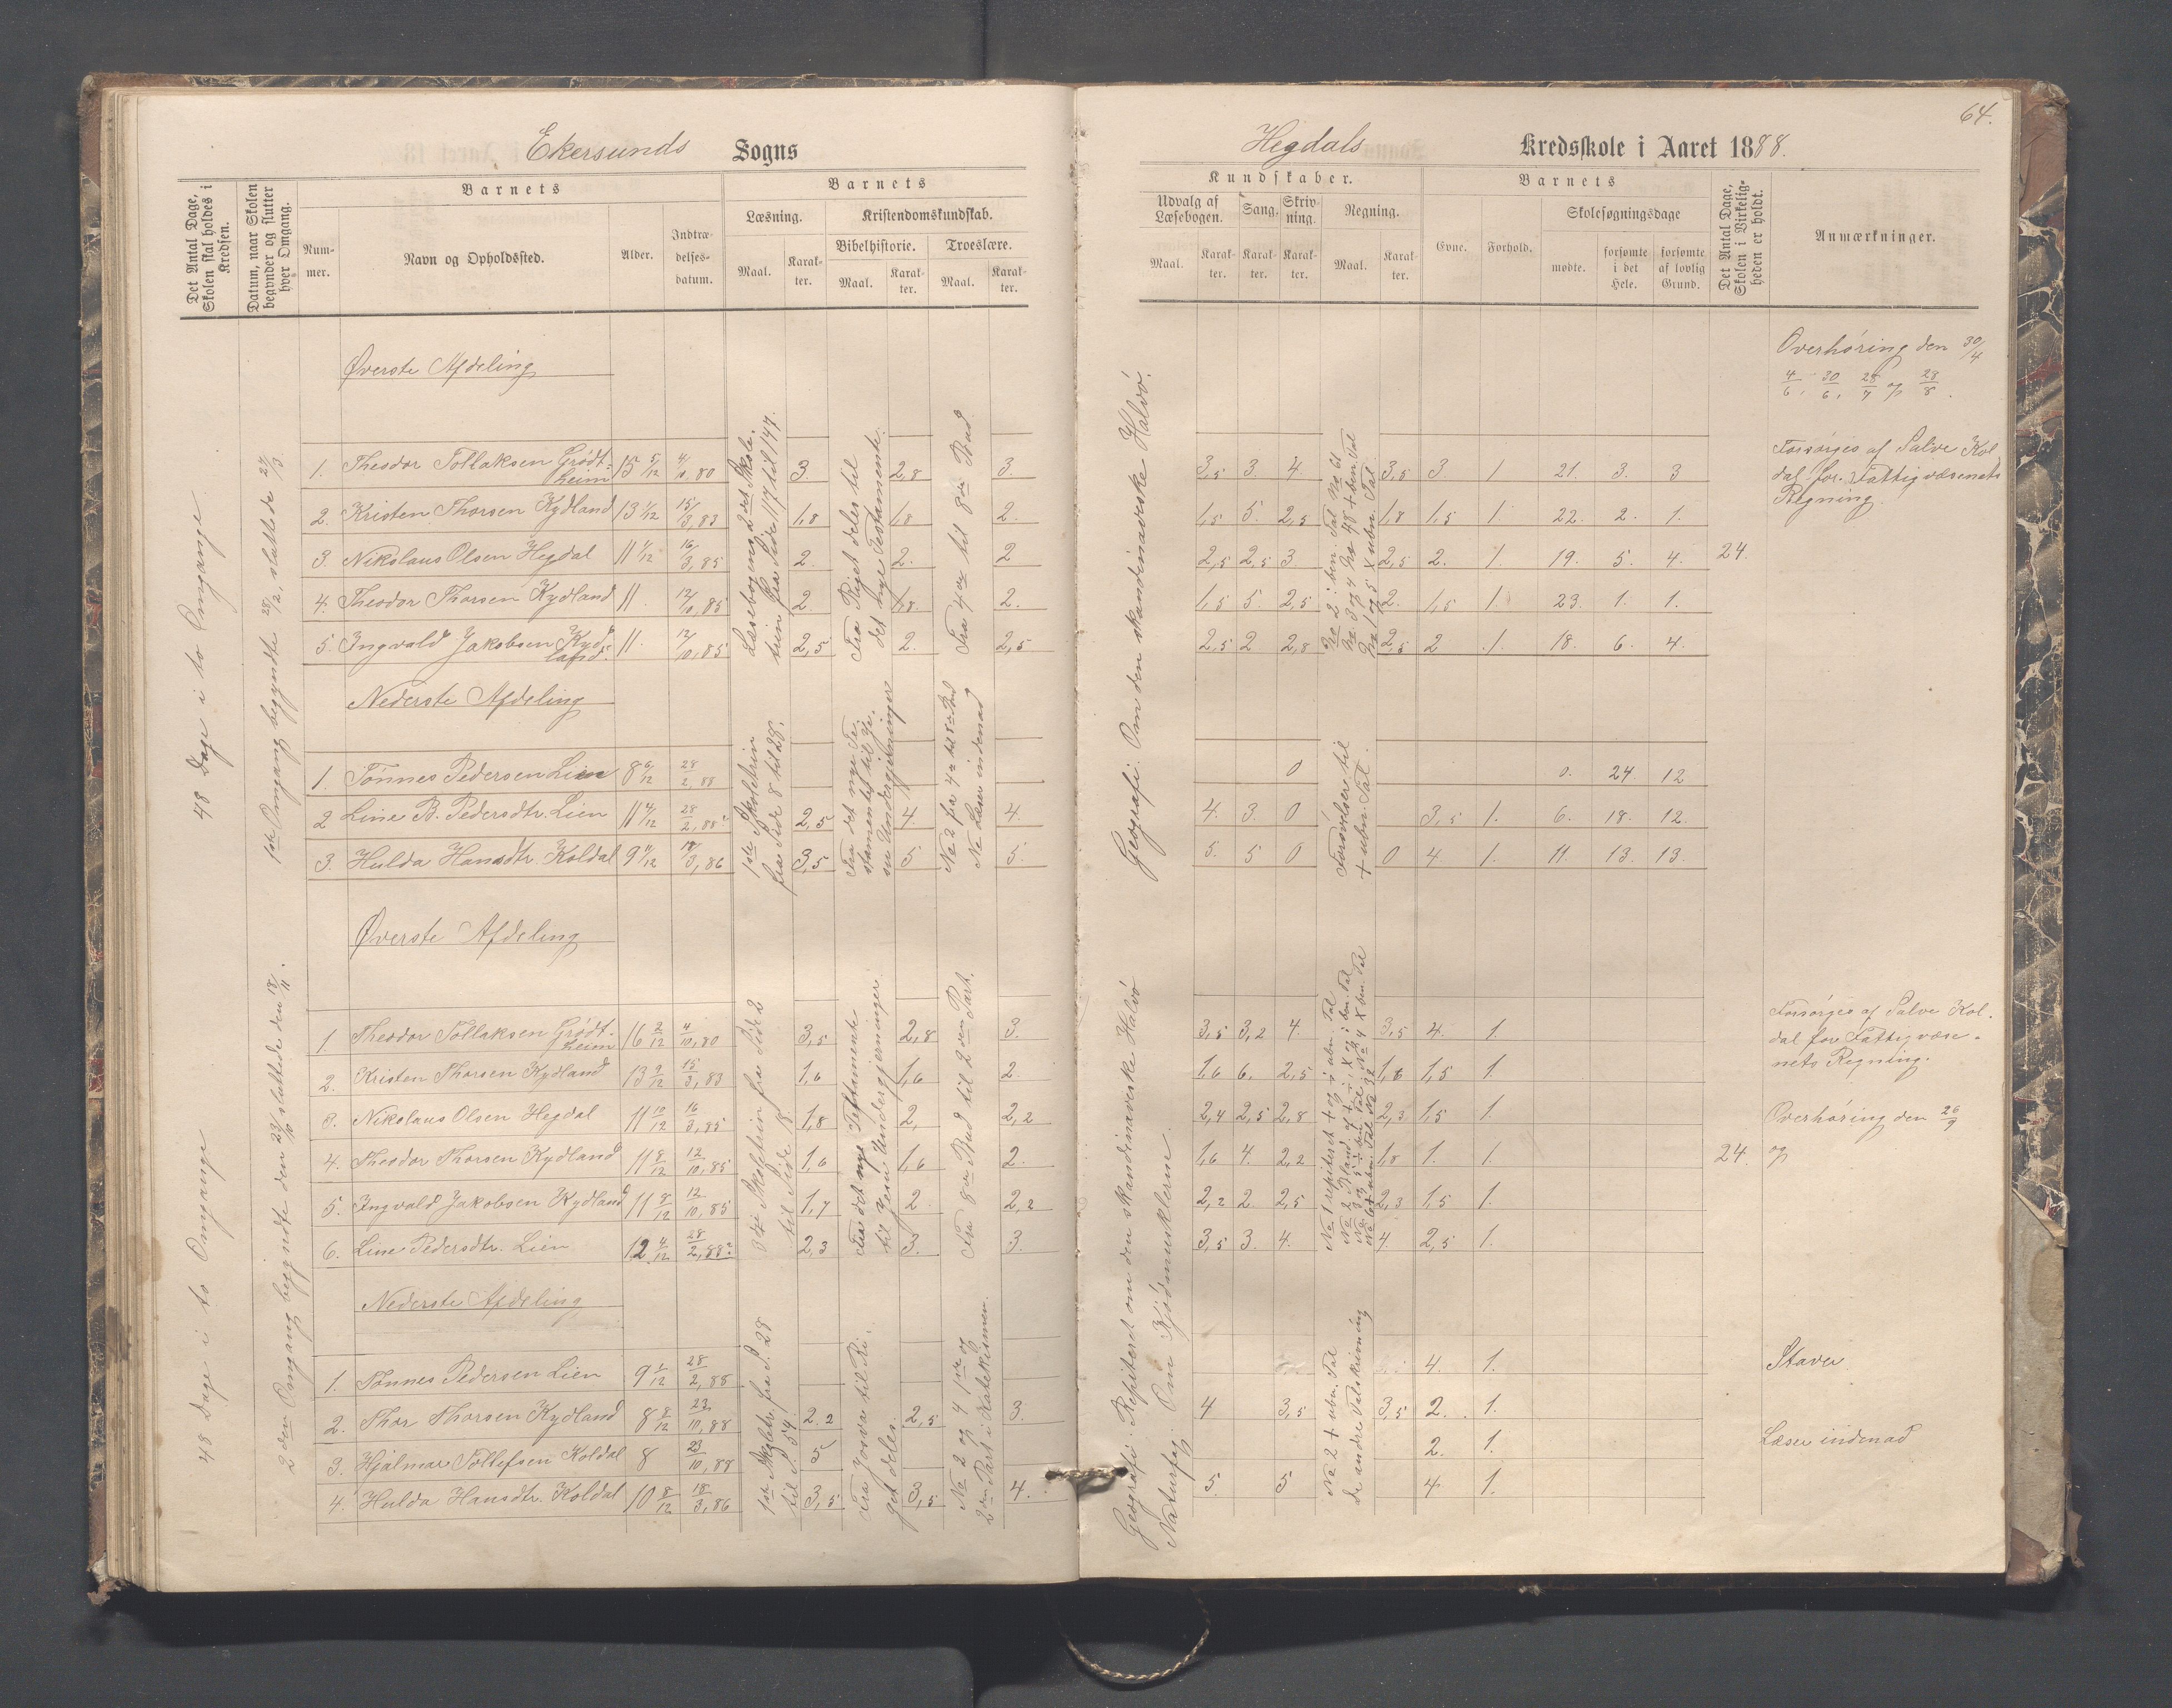 64.
Ekersunds Sogns
Hegdals Kredsskole i Aaret 1888.
Det Antal Dage, Skolen skal holdes i Kredsen.
Datum, naar Skolen begynder og slutter hver Omgang.
Barnets
Nummer.
Navn og Opholdssted.
Alder.
Indtrædelsesdatum.
Barnets
Læsning.
Maal.
Karakter.
Kristendomskundskab.
Bibelhistorie.
Maal.
Karakter.
Troeslære.
Maal.
Karakter.
Kundskaber.
Udvalg af Læsebogen.
Maal.
Karakter.
Sang.
Karakter.
Skrivning.
Karakter.
Regning.
Maal.
Karakter.
Barnets
Evne.
Forhold.
Skolesøgningsdage
mødte.
forsømte i det Hele.
forsømte af lovlig Grund.
Det Antal Dage, Skolen i Virkeligheden er holdt.
Anmærkninger.
48 Dage i to Omgange
1ste Omgang begyndte 28/2, sluttede 27/3
Øverste Afdeling
Overhøring den 30/4
4/6, 30/6, 28/7 og 23/8.
1. Theodor Tollaksen Grødtheim 15 5/12 4/10, 80 3. 2,8 3. 3,5 3. 4 3,5 3. 1 21. 3. 3
2. Kristen Thorsen Kydland 13 1/12 15/3, 83 1,8 1,8 2. 1,5 5. 2,5 1,8 1,5 1. 22. 2. 1.
3. Nikolaus Olsen Hegdal 11 4/12 16/3, 85 2. 2. 2 2,5 2,5 3 2,5 2. 1. 19. 5. 4. 24.
4. Theodor Thorsen Kydland 11. 12/10, 85 2. 1,8. 2. 1,5 5. 2,5 2. 1,5 1. 23. 1. 1.
5. Ingvald Jakobsen Kydland 11. 12/10, 85 2,5 2. 2,5 2,5 2 2,8 2,5 2 1. 18. 6. 4.
Læsebogens 2det Skoletrin fra Side 117 til 147.
Fra Riget deles til det nye Testamente.
Fra 4de til 8de Bud
Geografi: Om den skandinaviske Halvø.
No 2 : ben. Tal No 61
No 3 og 4 No 48 + ben. Tal
No 1 og 5 X ubn. Tal
Forsørges af Salve Koldal for Fattigvæsenets Regning.
Nederste Afdeling
1. Tønnes Pedersen Lien 8 6/12 28/2, 88 0 0. 24 12
2 Line B. Pedersdtr. Lien 11 4/12 28/2, 88 2,5 4. 4. 4. 3. 0 3,5 1. 6. 18. 12.
3. Hulda Hansdtr. Koldal 9 11/12 18/3, 86 3,5 5. 5. 5. 5 0 0 4 1. 11. 13. 13.
1ste Skoletrin fra Side 8 til 28.
Fra det nye Testamentet til Jesu Undergjerninger
No 2 fra 4de til 5te Bud
No Læser indenad
Forøvelser til + ubn. Tal.
48 Dage i to Omgange
2den Omgang begyndte den 23/10 sluttede den 18/11.
Øverste Afdeling
1. Theodor Tollaksen Grødtheim 16 2/12 4/10, 80 3,5 2,8 3. 3,5 3,2 4. 3,5 4. 1.
2. Kristen Thorsen Kydland 13 9/12 15/3, 83 1,6 1,6 2. 1,6 6. 2,5 1,6 1,5 1.
3. Nikolaus Olsen Hegdal 11 10/12 16/3, 85 1,8 2, 2,2 2,4 2,5 2,8 2,3 1,5 1.
4. Theodor Thorsen Kydland 11 8/12 12/10, 85 1,6 1,6 2. 1,6 4. 2,2 1,8 1. 1. 24.
5. Ingvald Jakobsen Kydland 11 8/12 12/10, 85 1,7 2. 2,2 2,2 2. 2,5 2,3 1,5 1.
6. Line Pedersdtr. Lien 12 4/12 28/2, 88 2,3 3. 3. 3,5 3. 4. 4 2,5 1.
3die Skoletrin fra Side 2 til Side 18.
Fra det nye Testamente til Jesu Undergjerninger
Fra 8de Bud til 2den Part.
Geografi: Repiteret om den skandinaviske Halvø
Naturfag. Om Kjødmusklerne.
Forsørges af Salve Koldal for Fattigvæsenets Regning.
Overhøring den 26/9 og
Nederste Afdeling
1. Tønnes Pedersen Lien 9 1/12 28/2, 88 4. 1. Staver
2. Thor Thorsen Kydland 8 8/12 23/10, 88 2.2 2,5 3. 4 3,5 3,5 2. 1.
3. Hjalmar Tollefsen Koldal 8 23/10, 88 5 2. 1. Læser indenad
4. Hulda Hansdtr. Koldal 10 8/12 18/3, 86 3,5 3,5 4. 5. 5 4 1.
1ste Skoletr. fra S. 28 til S. 54.
Fra Josva til Riget deles.
No 2 og 4 1ste og 2den Part i Katekismen.
No 2 + ubn. Tal
De andre Talskrivning